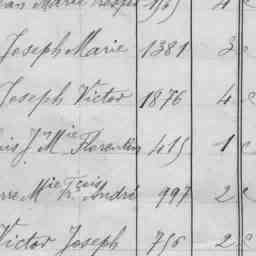 Marie 
Joseph Marie 1381 3
Joseph Victor 1876 4
Jn Mie Florentin 415 1
Mie Fçois André 997 2
Victor Joseph 756 2